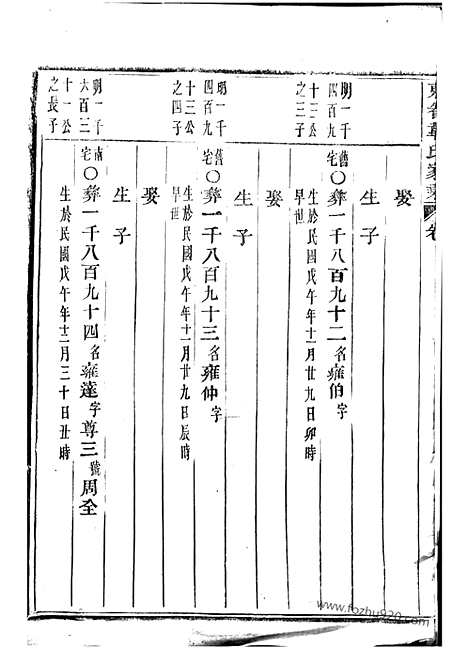 氏家乘 卷
娶
生子
明一千
四百九
十三公
之三子
舊宅〇彝一千八百九十二名雍伯字
生於民國戊午年十一月廿九日卯時
早世
娶
生子
明一千
四百九
十三公
之四子
舊宅〇彝一千八百九十三名雍仲字
生於民國戊午年十一月廿九日辰時
早世
娶
生子
明一千
六百三
十一公
之長子
南宅〇彝一千八百九十四名雍達字尊三號周全
生於民國戊午年十二月三十日丑時
www.fozhu920.com